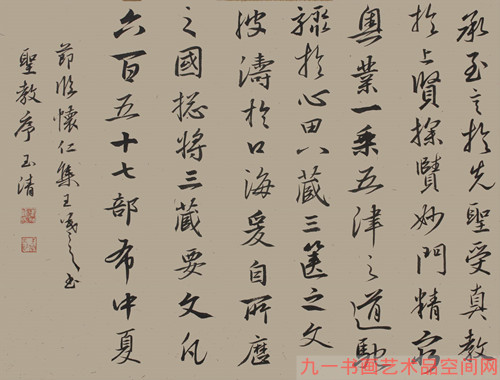 承至言於先聖受真教
於上賢探賾妙門精窮
奧業一乘五津之道馳
驟於心田八藏三篋之文
波濤於口海爰自所歷
之國揔將三藏要文凡
六百五十七部布中夏
節臨懷仁集王羲之書
聖教序玉清
九一书画艺术品空间网